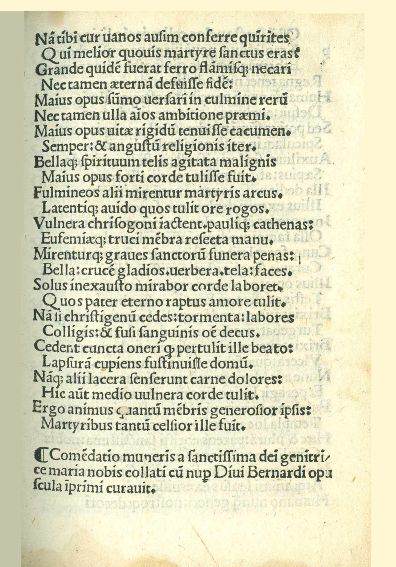 Nā tibi cur uanos ausim conferre quirites
Qui melior quouis martyre sanctus eras?
Grande quidē fuerat ferro flāmisq; necari
Nec tamen æternā defuisse fidē:
Maius opus sūmo uersari in culmine rerū
Nec tamen ulla aīos ambitione præmi.
Maius opus uitæ rigidū tenuisse cacumen.
Semper: & angustū religionis iter.
Bellaq; spirituum telis agitata malignis
Maius opus forti corde tulisse fuit.
Fulmineos alii mirentur martyris arcus.
Latentiq; auido quos tulit ore rogos.
Vulnera chrisogoni iactent. pauliq; cathenas:
Eufemiæq; truci mēbra resecta manu.
Mirenturq; graues sanctorū funera penas:
Bella: crucē gladios. uerbera. tela: faces.
Solus inexausto mirabor corde labores.
Quos pater eterno raptus amore tulit.
Nā li christigenū cedes: tormenta: labores
Colligis: & fusi sanguinis oē decus.
Cedent cuncta oneri ꝙ pertulit ille beato:
Lapsurā cupiens sustinuisse domū.
Nāq; alii lacera senserunt carne dolores:
Hic aūt medio uulnera corde tulit.
Ergo animus quantū mēbris generosior ipsis:
Martyribus tantū celsior ille fuit.
¶ Comēdatio muneris a sanctissima dei genitri
ce maria nobis collati cū nup Diui Bernardi opu
scula īprimi curauit.